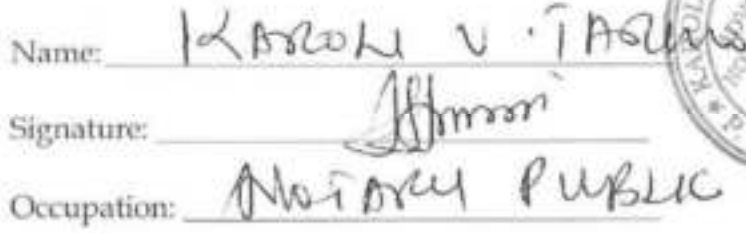 Name: KAROLI V. TARIMO
Signature:
Occupation: NOTARY PUBLIC